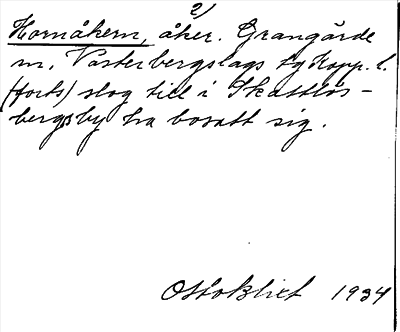 2/
Hornåkern, åker. Grangärde
sn, Västerbergslags tg Kopp. l.
(forts) slog till i Skattlös-
bergsby ha bosatt sig.
Otto Blixt 1934